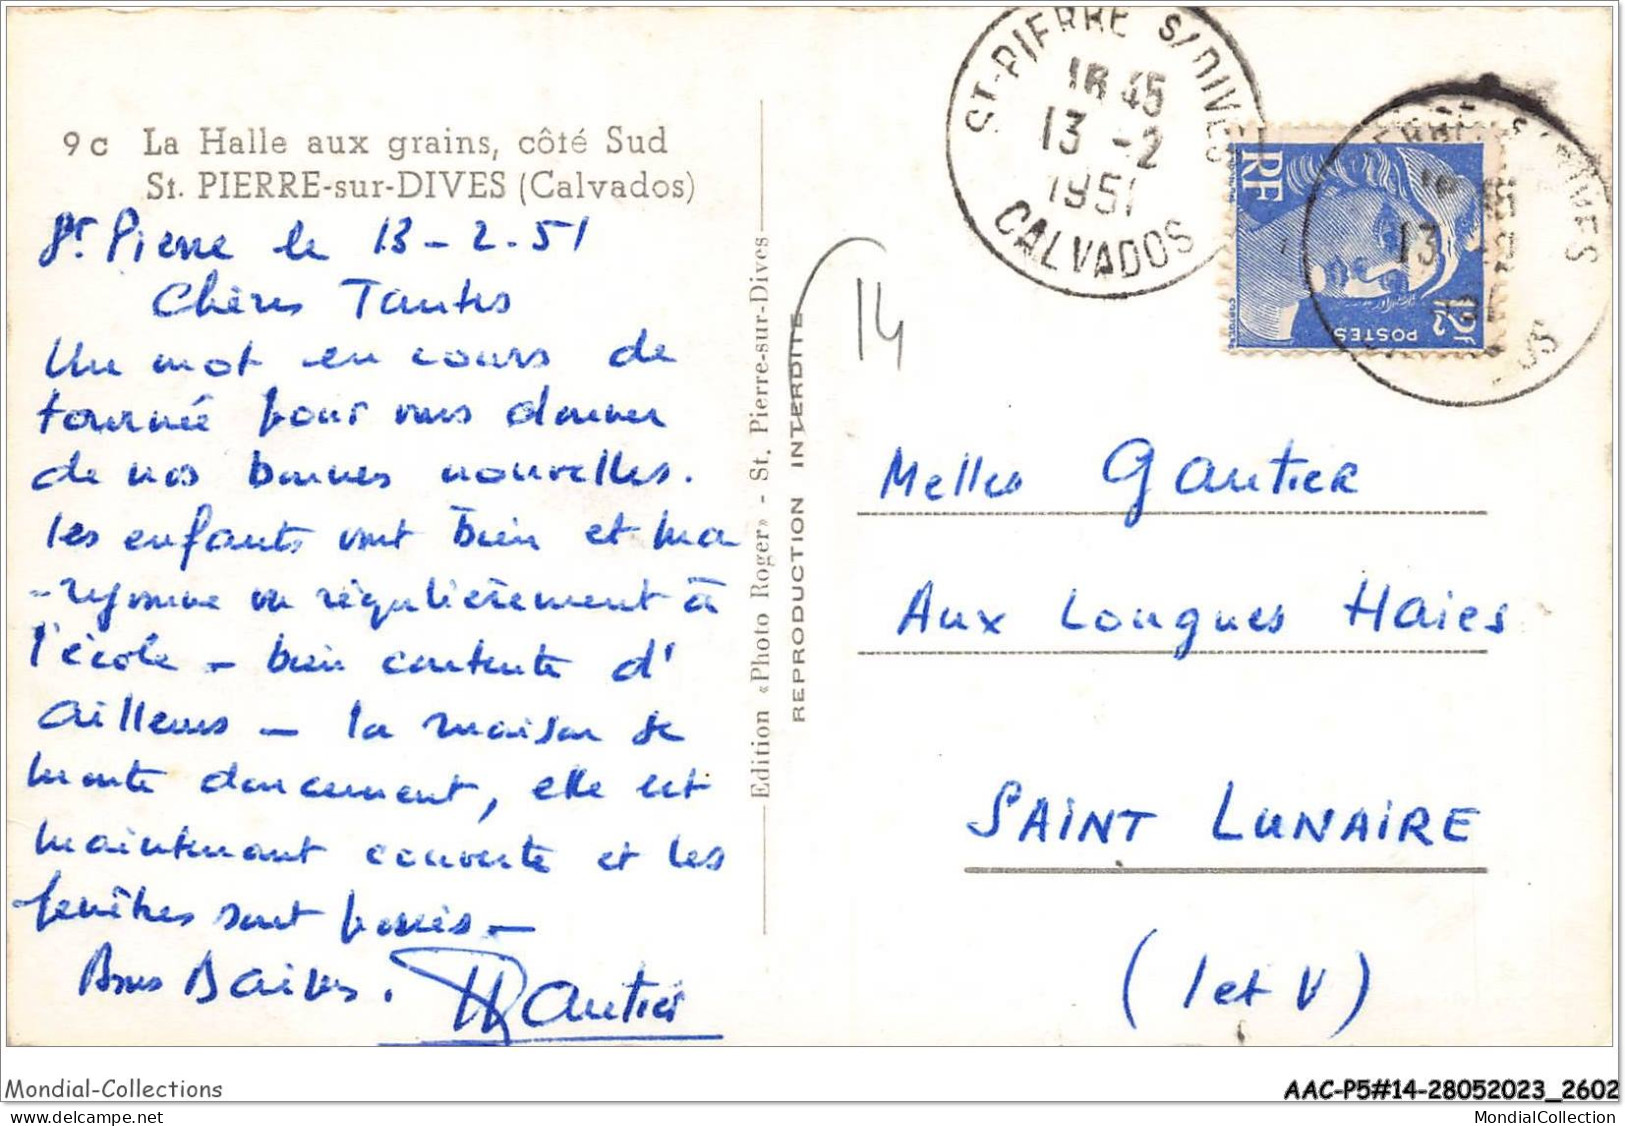 9c La Halle aux grains, côté Sud
St. PIERRE-sur-DIVES (Calvados)
St. Pierre le 13-2-51
Chères Tantes
Un mot en cours de
tournée pour vous donner
de nos bonnes nouvelles.
Les enfants vont bien et Ma
-ryvonne va régulièrement à
l'école - bien contente d'
ailleurs - la maison se
monte doucement, elle est
maintenant couverte et les
fenêtres sont posées -
Bons Baisers.
Gautier
Edition «Photo Roger» - St. Pierre-sur-Dives
REPRODUCTION INTERDITE
14
ST-PIERRE S/DIVES
16 45
13 -2
1951
CALVADOS
RF
POSTES
13
Melles Gautier
Aux Longues Haies
SAINT LUNAIRE
(I et V)
Mondial-Collections
AAC-P5#14-28052023_2602
delcampe.net
MondialCollection